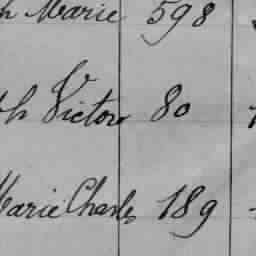 Marie 598
Victor 80
Marie Charles 189